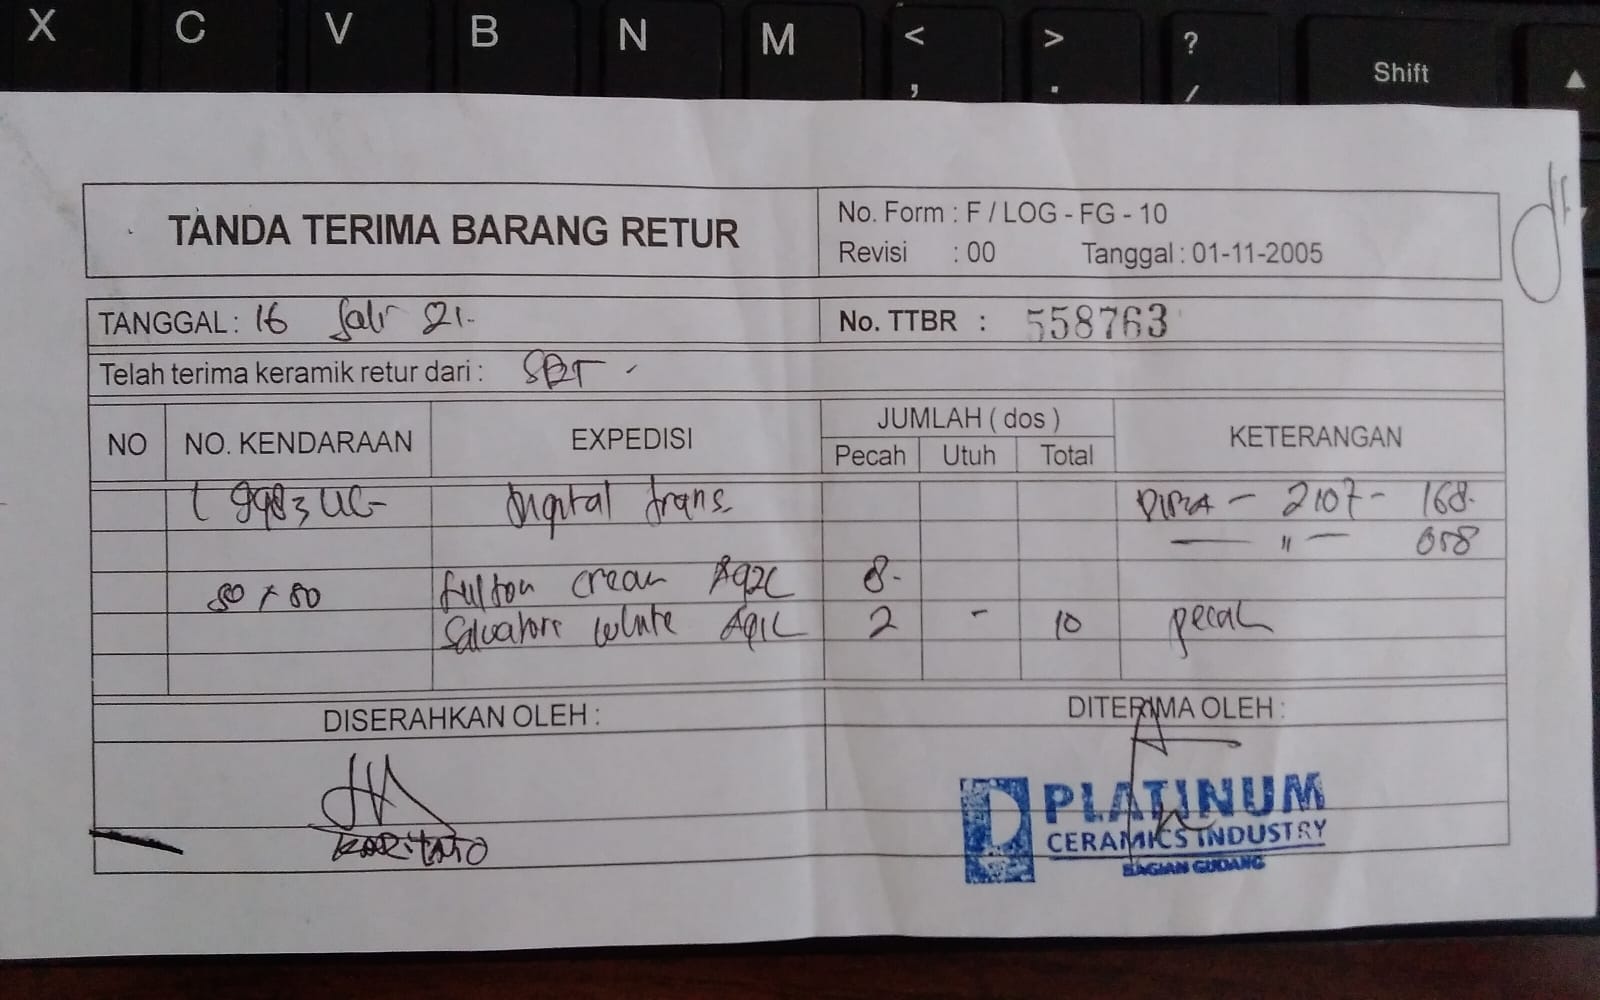 X C V B N M < , > . ? / Shift ▲
TANDA TERIMA BARANG RETUR
No. Form : F / LOG - FG - 10
Revisi : 00 Tanggal : 01-11-2005
TANGGAL : 16 21.
No. TTBR : 558763
Telah terima keramik retur dari : SBT -
NO NO. KENDARAAN EXPEDISI JUMLAH ( dos ) KETERANGAN
Pecah Utuh Total
L 9983 UG Digital trans. - 2107 - 168.
— " — 058
80 x 80 Fulton cream 8.
Salvatore white 2 - 10 pecah
DISERAHKAN OLEH : DITERIMA OLEH :
PLATINUM
CERAMICS INDUSTRY
BAGIAN GUDANG